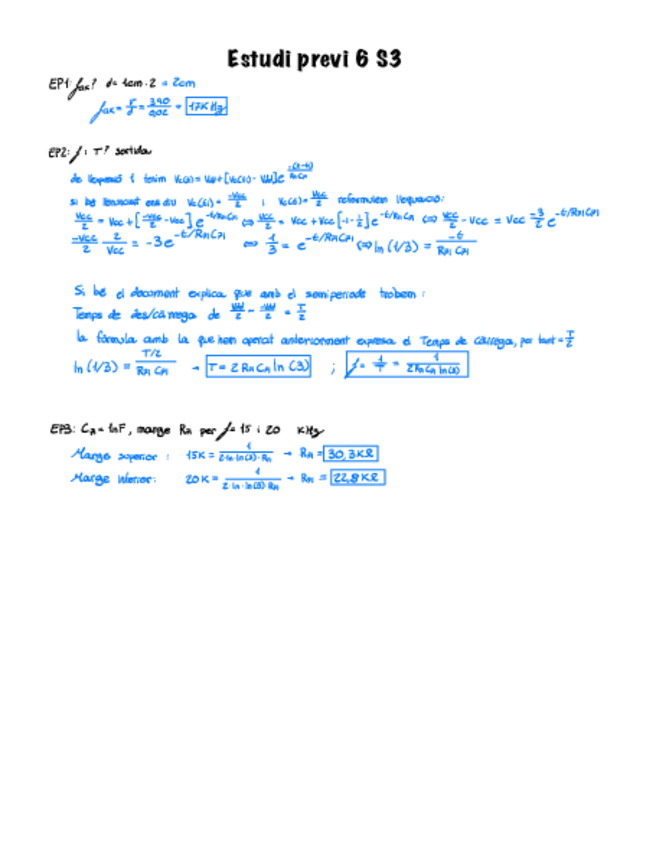 Estudi previ 6 S3
EP1: fax? d= 1cm·2 = 2cm
fax = v/d = 340/0,02 = 17KHz
EP2: f i T? sortida
de l'expressió 1 tenim Vc(t) = VM + [Vc(ti) - VM] e
si bé l'enunciat ens diu Vc(ti) = -Vcc/2 i Vc(t) = Vcc/2 reformulem l'equació:
Vcc/2 = Vcc + [-Vcc/2 - Vcc] e^-t/RA CA ⇔ Vcc/2 = Vcc + Vcc [-1 - 1/2] e^-t/RA CA ⇔ Vcc/2 - Vcc = Vcc -3/2 e^-t/RA CA
-Vcc/2 2/Vcc = -3 e^-t/RA CA ⇔ 1/3 = e^-t/RA CA ⇔ ln (1/3) = -t/RA CA
Si bé el document explica que amb el semiperiode trobem :
Temps de des/càrrega de = T/2
la fórmula amb la que hem operat anteriorment expressa el Temps de càrrega, per tant = T/2
ln (1/3) = T/2/RA CA → T = 2 RA CA ln (3) ; f = 1/T = 1/2 RA CA ln(3)
EP3: CA = 1nF, marge RA per f = 15 i 20 KHz
Marge superior : 15K = 1/2·1n·ln(3)·RA → RA = 30,3KΩ
Marge inferior: 20K = 1/2·1n·ln(3)·RA → RA = 22,8KΩ